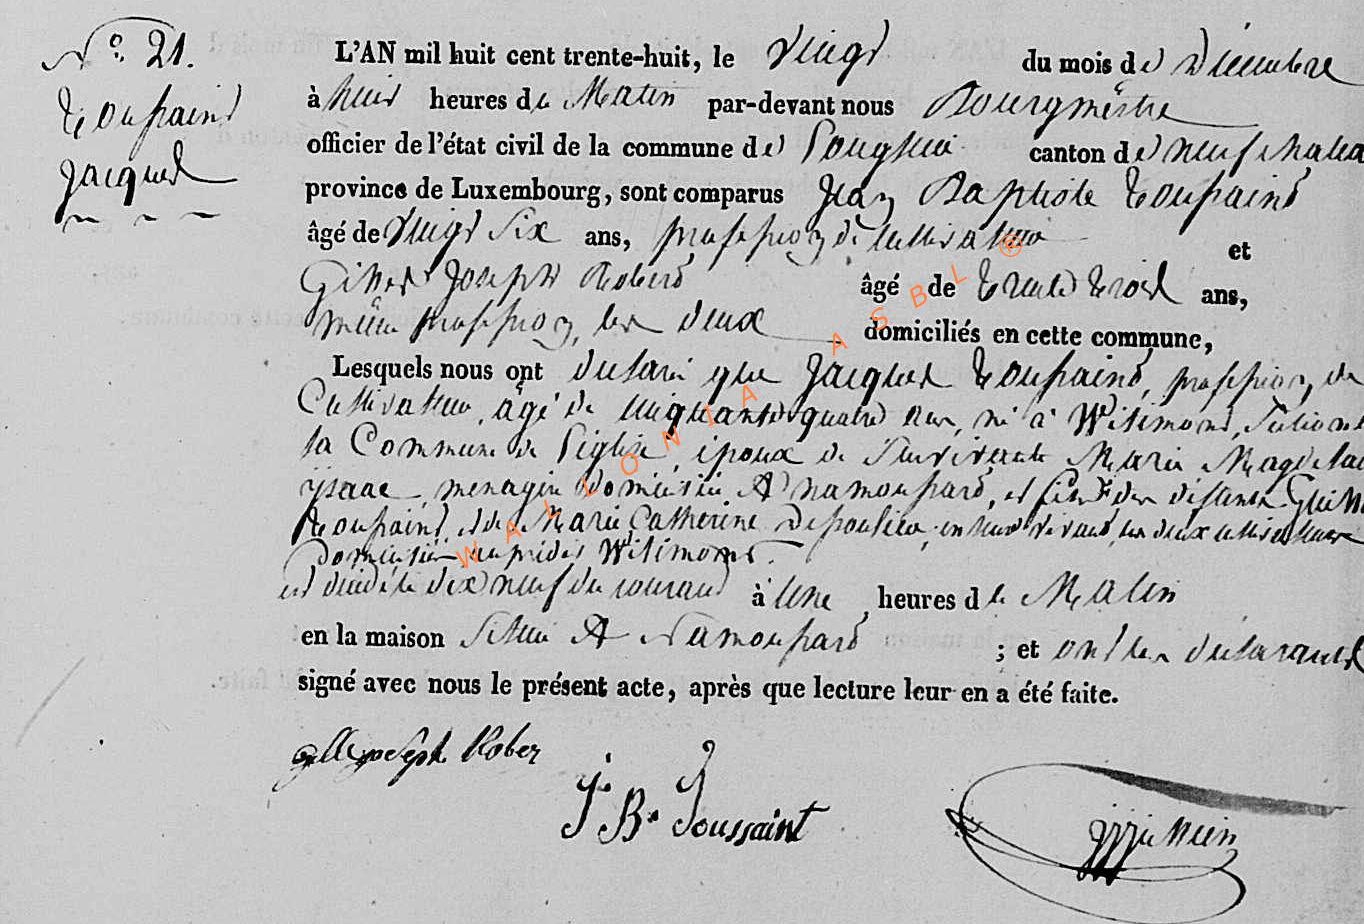 N° 21.
Toussaint
Jacques
L'AN mil huit cent trente-huit, le Vingt du mois de Décembre
à huit heures de Matin par-devant nous Bourgmestre
officier de l'état civil de la commune de Longlier canton de neufchatea
province de Luxembourg, sont comparus Jean Baptiste Toussaint
âgé de Vingt Six ans, profession de cultivateur et
Gilles Joseph Robert âgé de Trente Trois ans,
même profession, les deux domiciliés en cette commune,
Lesquels nous ont déclaré que Jacques Toussaint, profession de
Cultivateur, âgé de cinquante quatre ans, né à Witimont,
la Commune de Léglise, époux de Survivante Marie Magdelai
ysaac, menagère domiciliée A namoussard, et fils des défunts
Toussaint, et de Marie Catherine en leur vivant, les deux cultivateurs
Domiciliés au prédit Witimont.
est décédé le dix neuf du courant à Une heures de Matin
en la maison Située A Namoussard ; et ont les déclarants
signé avec nous le présent acte, après que lecture leur en a été faite.
gille joseph Rober
J. B. Toussaint
WALLONIA ASBL ®